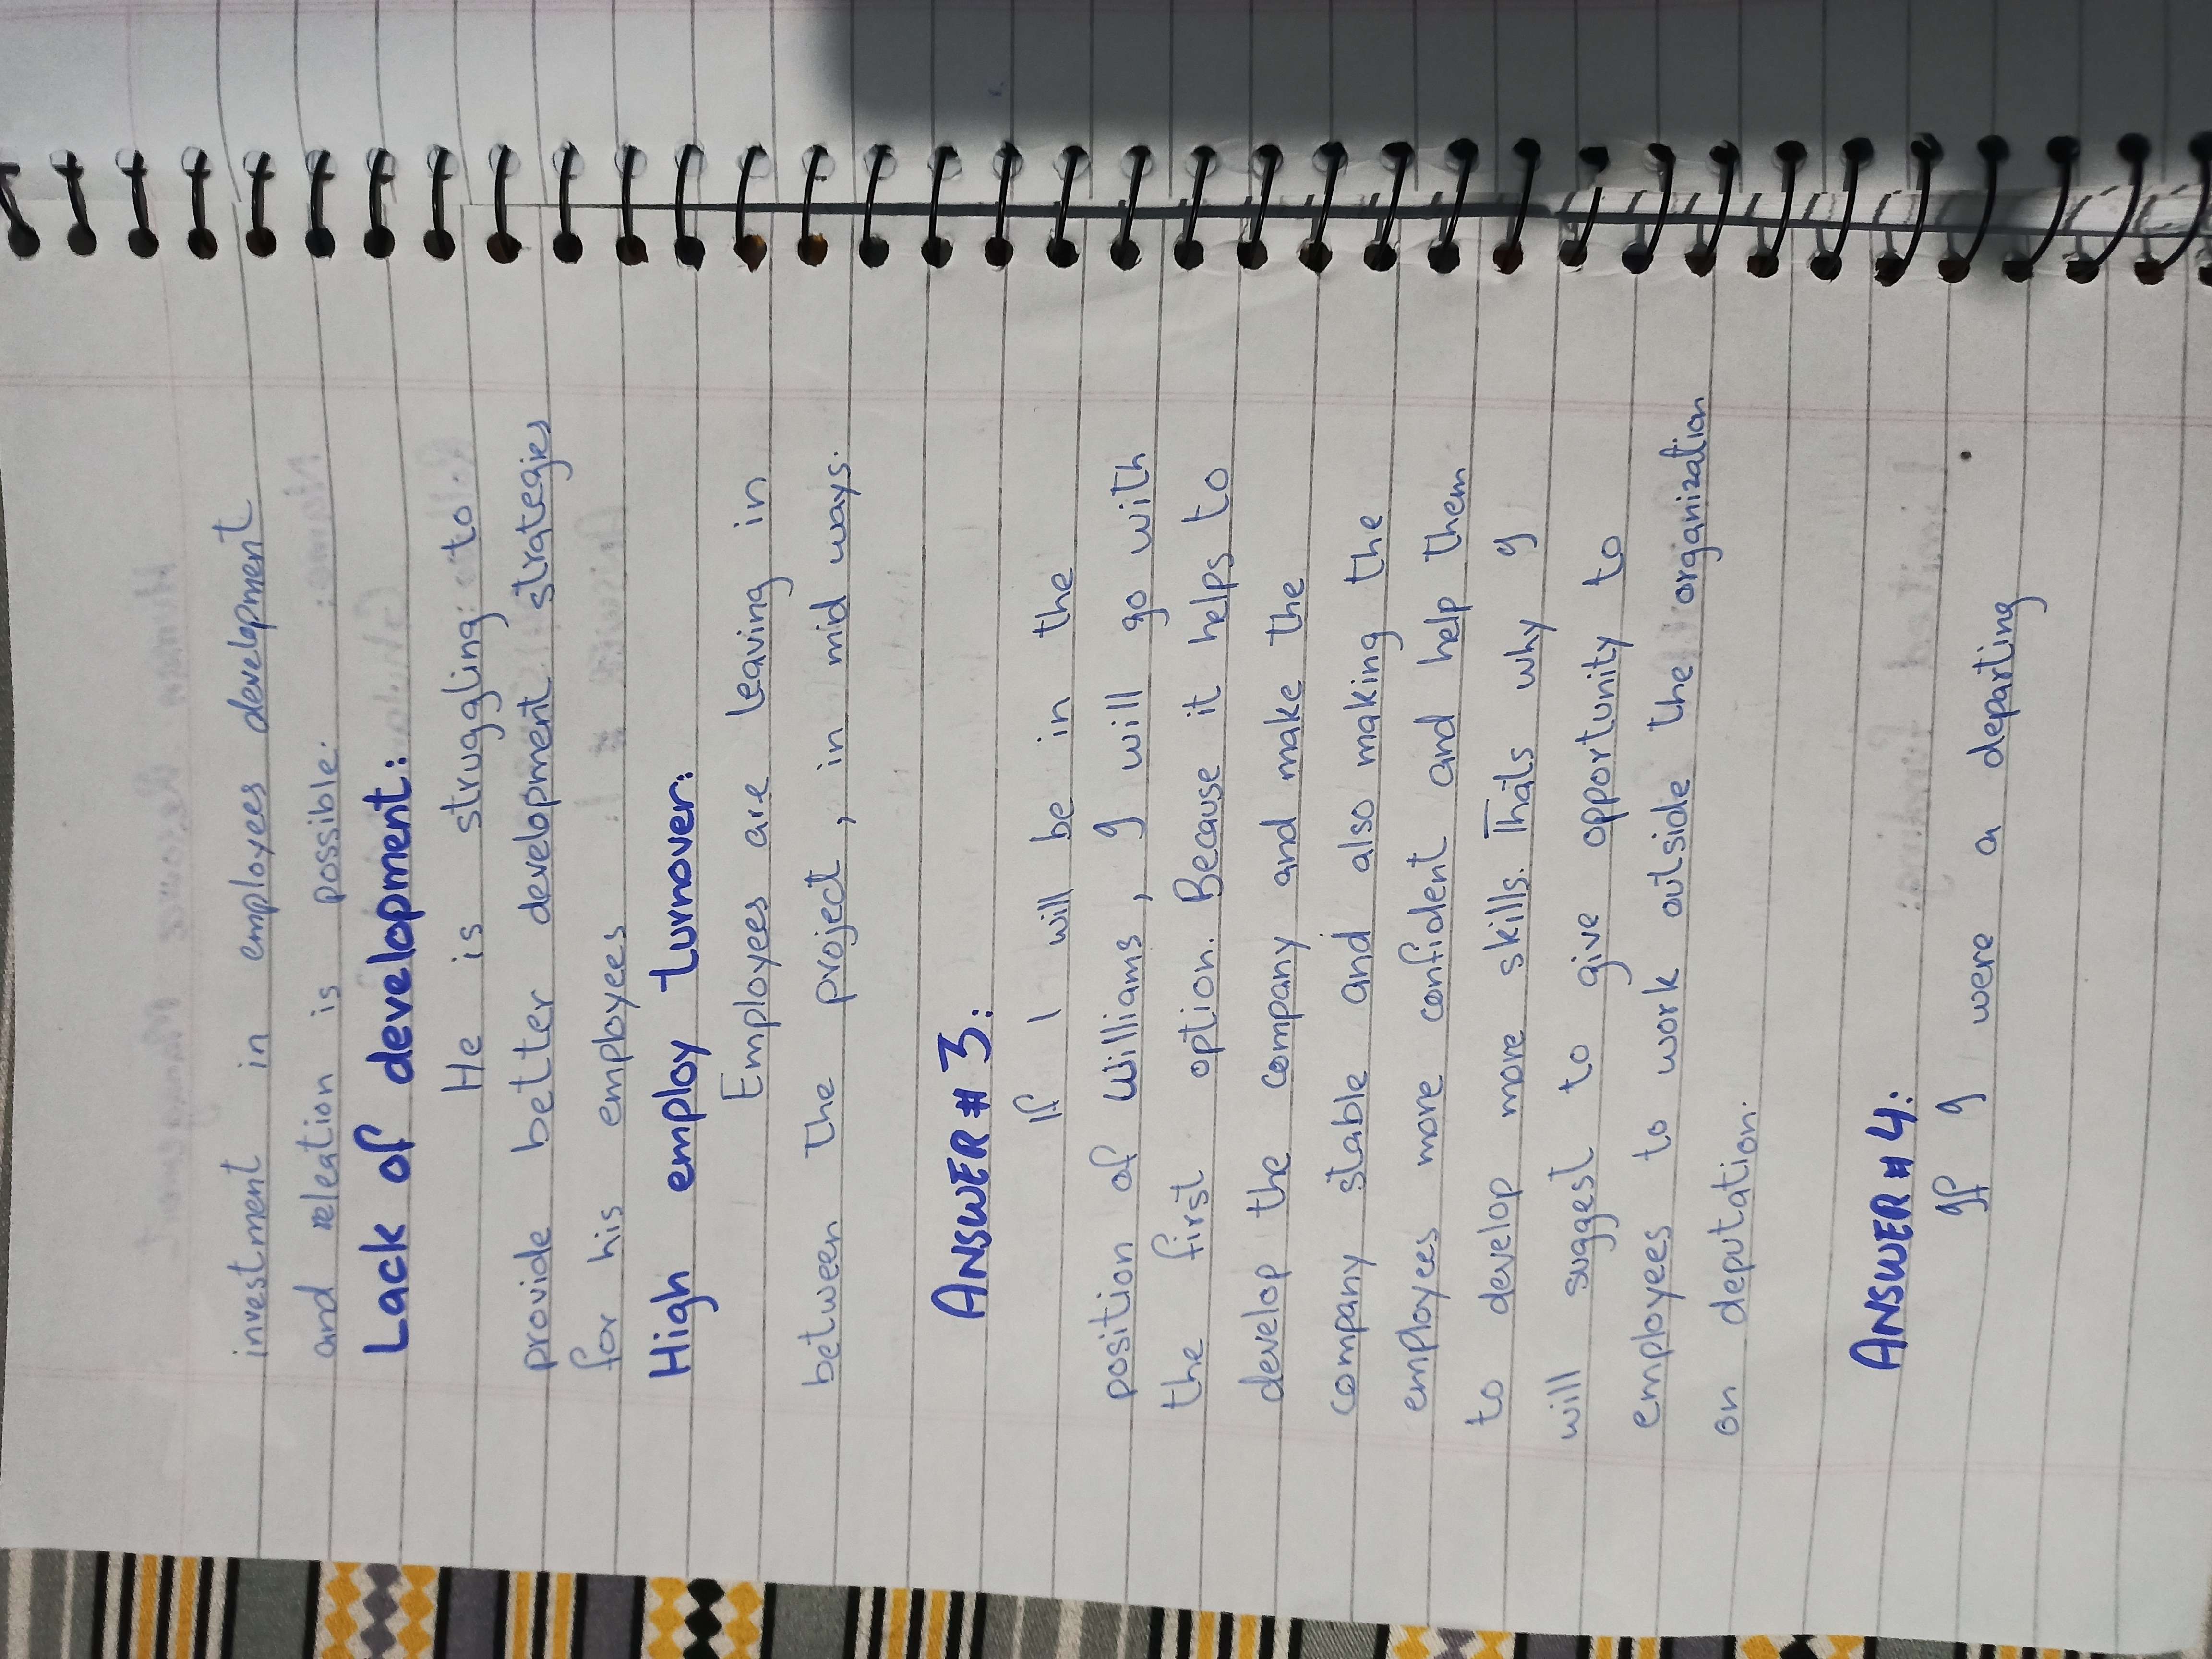 investment in employes development
and releation is possible.
Lack of development:
He is struggling to
provide better development strategies
for his employees
High employ turnover:
Employees are leaving in
between the project, in mid ways.
ANSWER # 3:
If I will be in the
position of Williams, I will go with
the first option. Because it helps to
develop the company and make the
company stable and also making the
employees more confident and help them
to develop more skills. Thats why I
will suggest to give opportunity to
employees to work outside the organization
on deputation.
ANSWER # 4:
If I were a departing